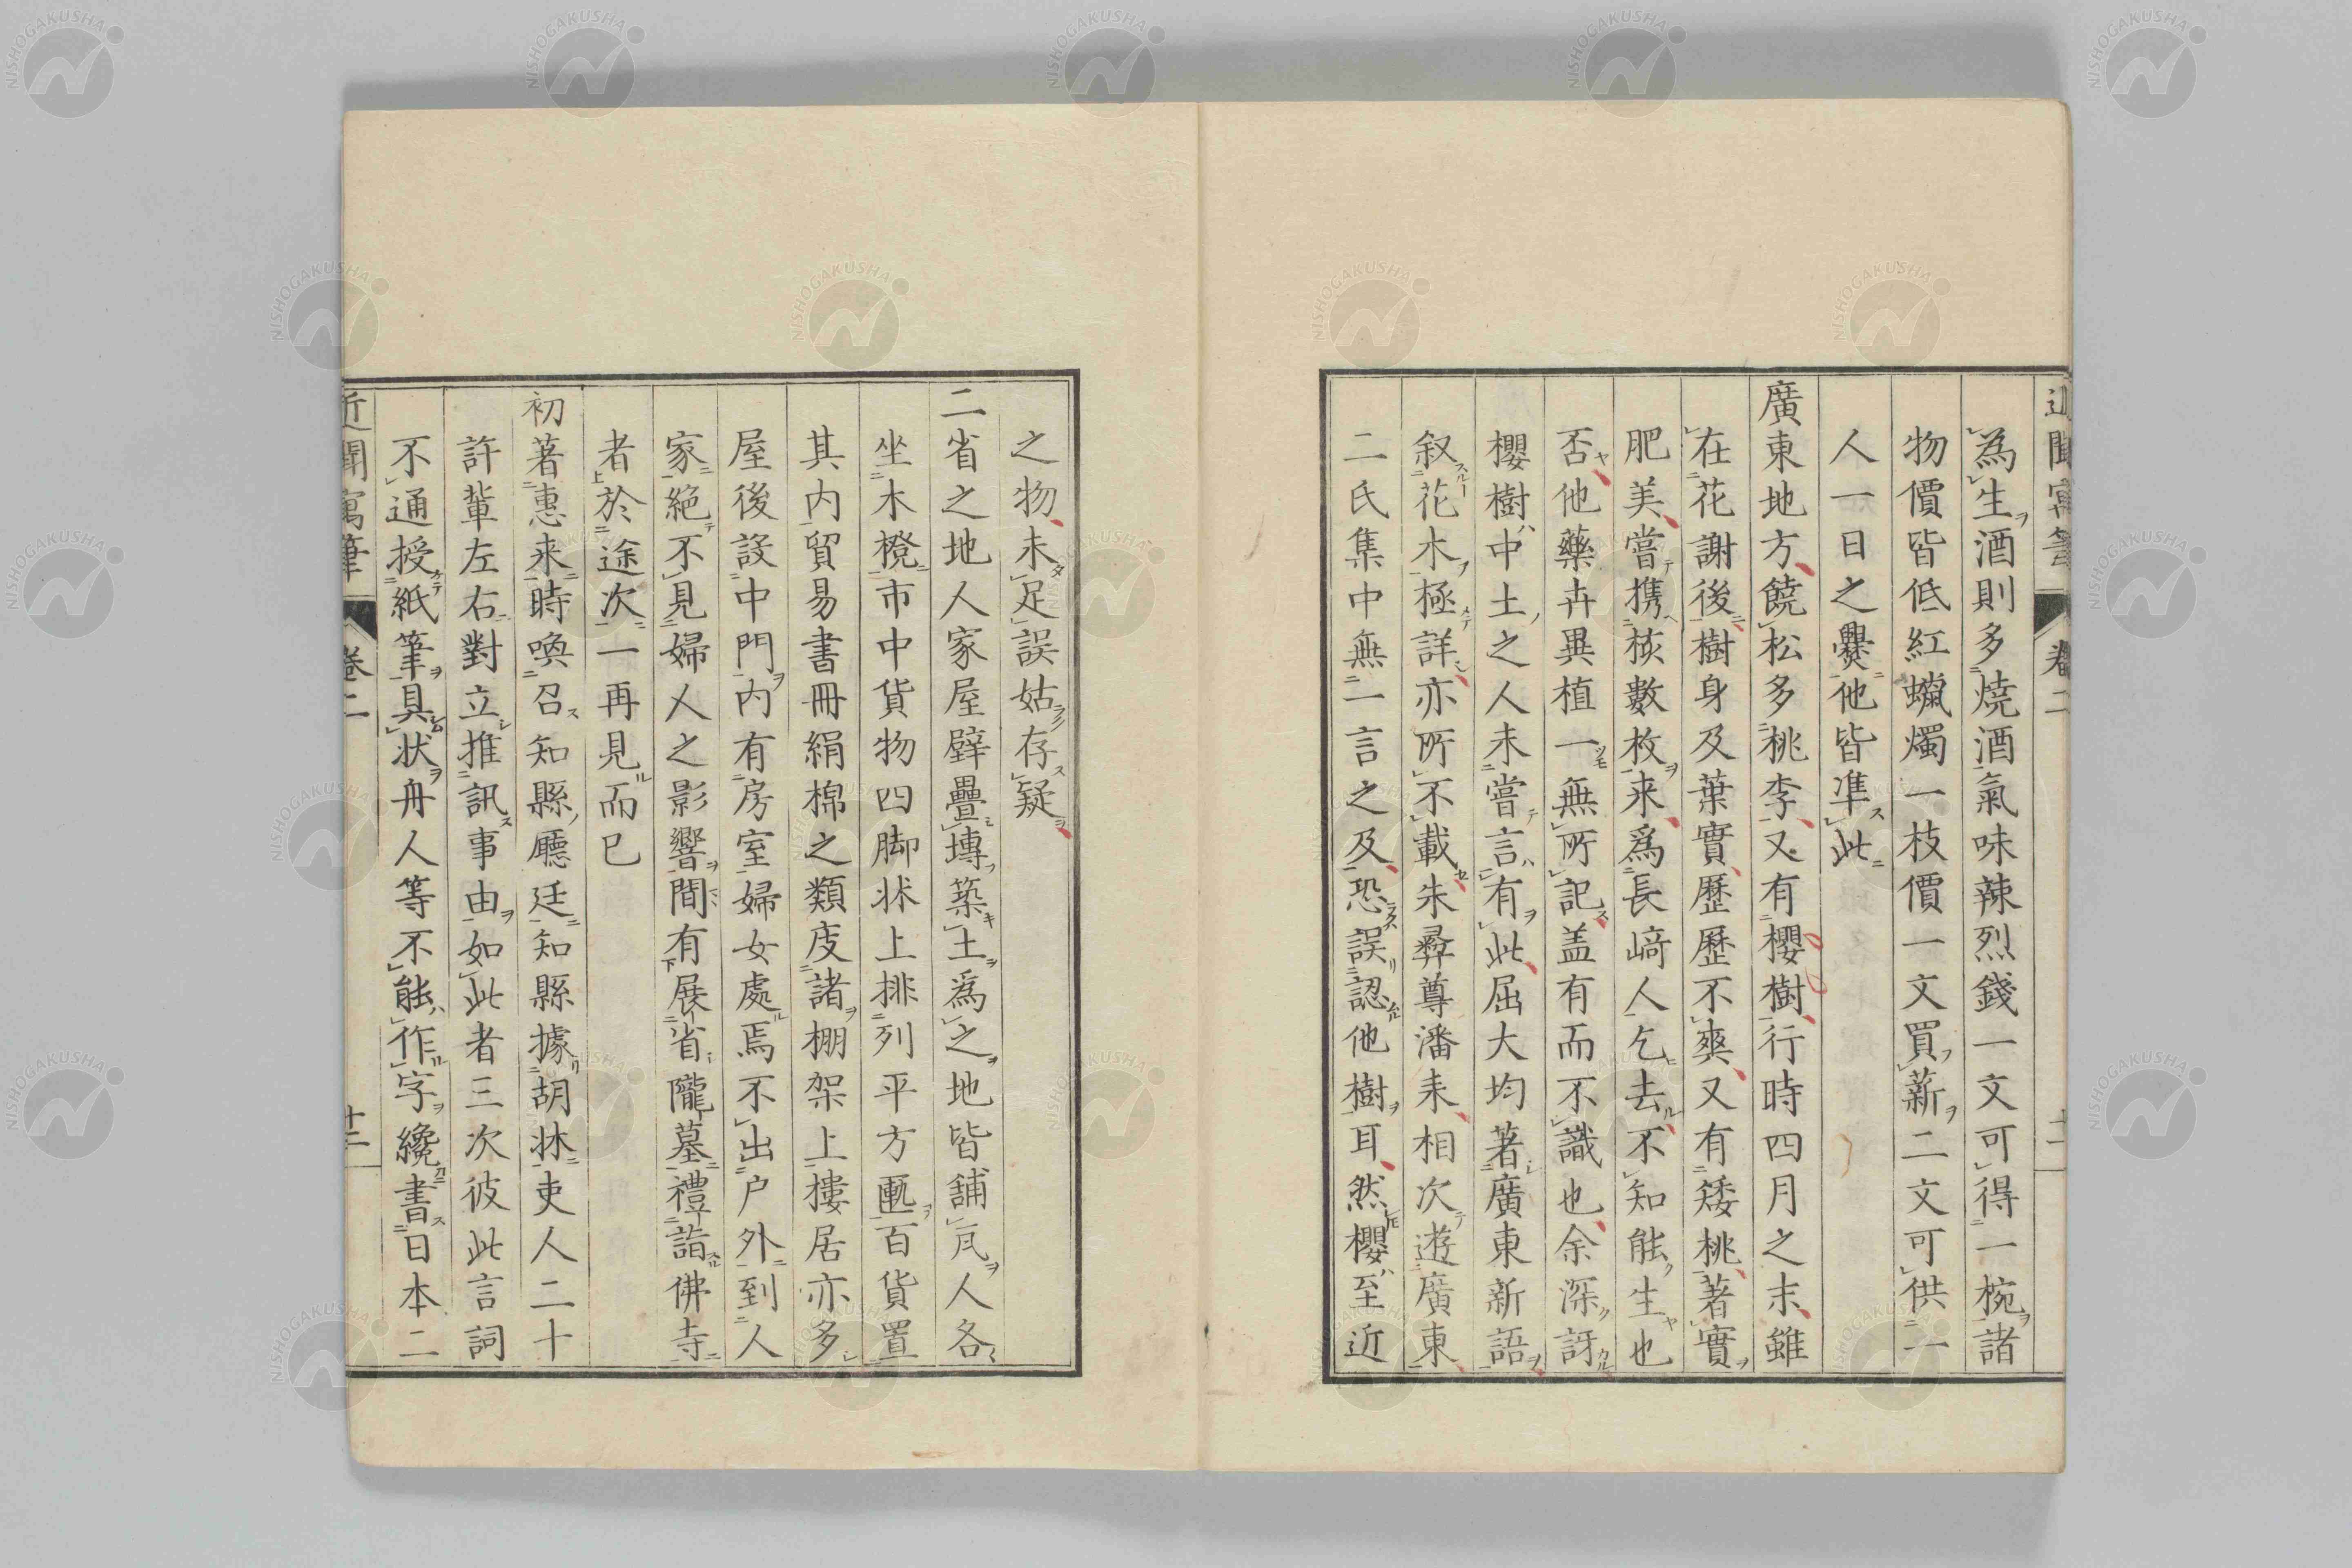 近聞寓筆 卷二 十二
為生酒則多燒酒氣味辣烈錢一文可得一椀諸
物價皆低紅蠟燭一枝價一文買薪二文可供一
人一日之爨他皆準此
廣東地方饒松多桃李又有櫻樹行時四月之末雖
在花謝後樹身及葉實歷歷不爽又有矮桃著實
肥美嘗携核數枚来爲長﨑人乞去不知能生也
否他藥卉異植一無所記盖有而不識也余深訝
櫻樹中土之人未嘗言有此屈大均著廣東新語
叙花木極詳亦所不載朱彝尊潘耒相次遊廣東
二氏集中無一言之及恐誤認他樹耳然櫻至近
之物未足誤姑存疑
二省之地人家屋壁疊塼築土爲之地皆舖瓦人各
坐木櫈市中貨物四脚牀上排列平方匭百貨置
其内貿易書冊絹棉之類庋諸棚架上摟居亦多
屋後設中門内有房室婦女處焉不出户外到人
家絶不見婦人之影響間有展省隴墓禮詣佛寺
者於途次一再見而已
初著惠来時喚召知縣廳廷知縣據胡牀吏人二十
許輩左右對立推訊事由如此者三次彼此言詞
不通授紙筆具狀舟人等不能作字纔書日本二
近聞寓筆 卷二 十二